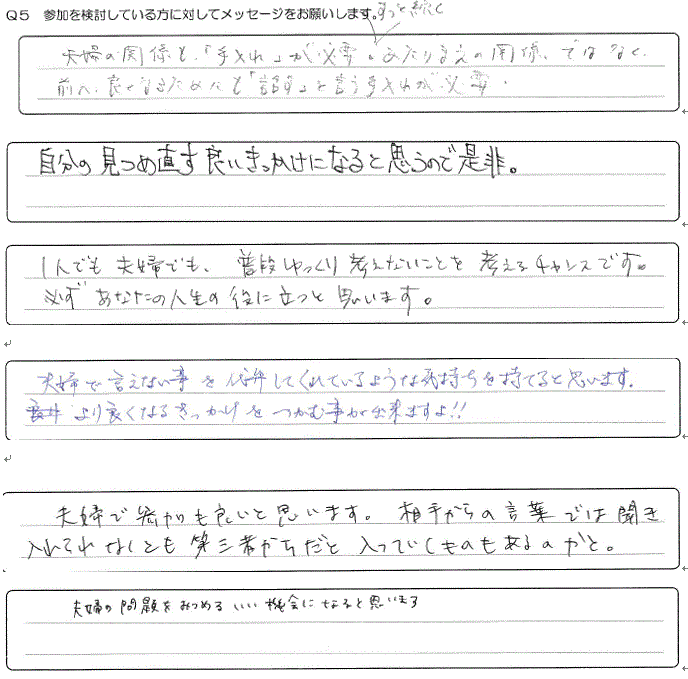 Q5 参加を検討している方に対してメッセージをお願いします。
ずっと続く
夫婦の関係も、「手入れ」が必要。あたりまえの関係、ではなく、
前へ、良くなるためにも「話す」と言う手入れが必要。
自分の見つめ直す良いきっかけになると思うので是非。
1人でも夫婦でも、普段ゆっくり考えないことを考えるチャンスです。
必ずあなたの人生の役に立つと思います。
夫婦で言えない事を代弁してくれているような気持ちを持てると思います。
より良くなるきっかけをつかむ事が出来ますよ!!
夫婦で参加も良いと思います。相手からの言葉では聞き
入れられなくとも第三者からだと入っていくものもあるのかと。
夫婦の問題をみつめるいい機会になると思います